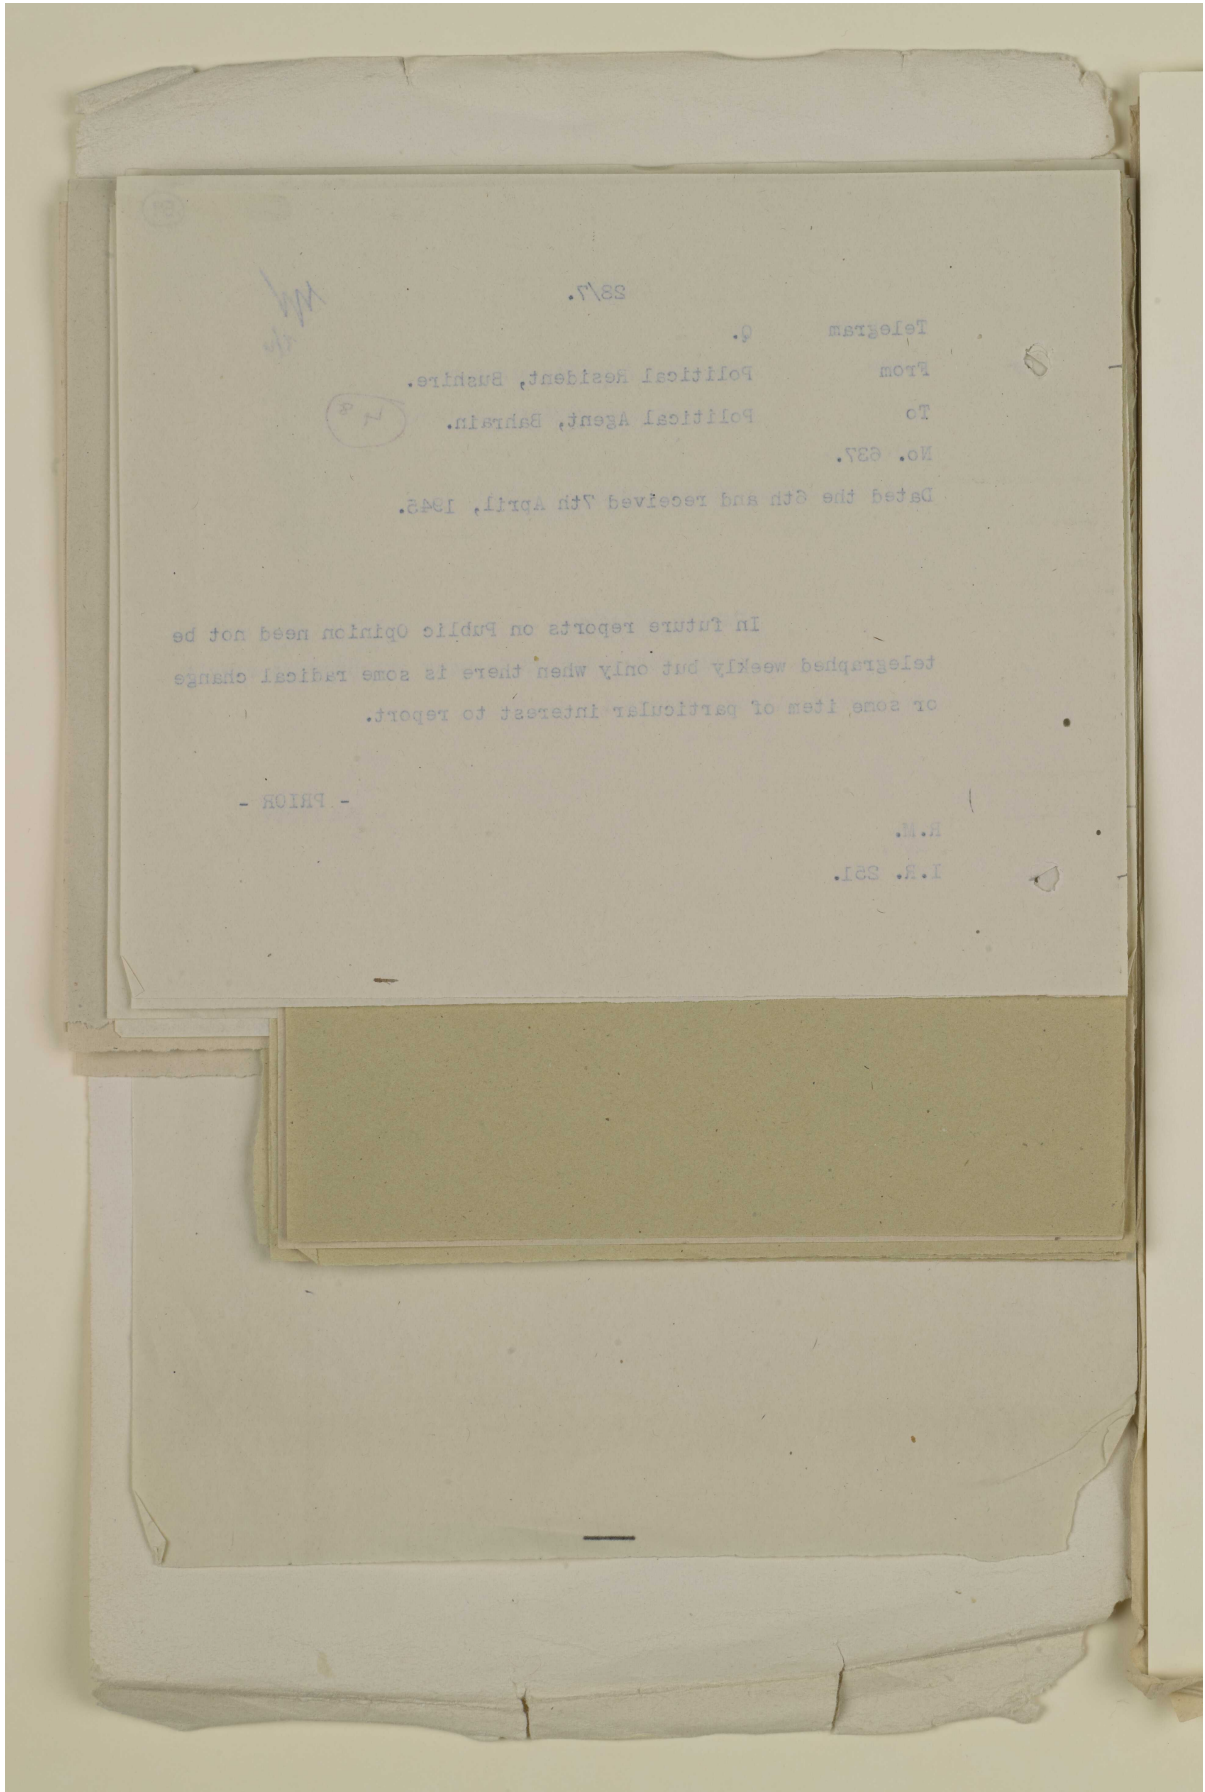 28/7.
Telegram Q.
From Political Resident, Bushire.
To Political Agent, Bahrain.
No. 637.
Dated the 6th and received 7th April, 1945.
In future reports on Public Opinion need not be
telegraphed weekly but only when there is some radical change
or some item of particular interest to report.
- PRIOR -
R.M.
I.R. 251.